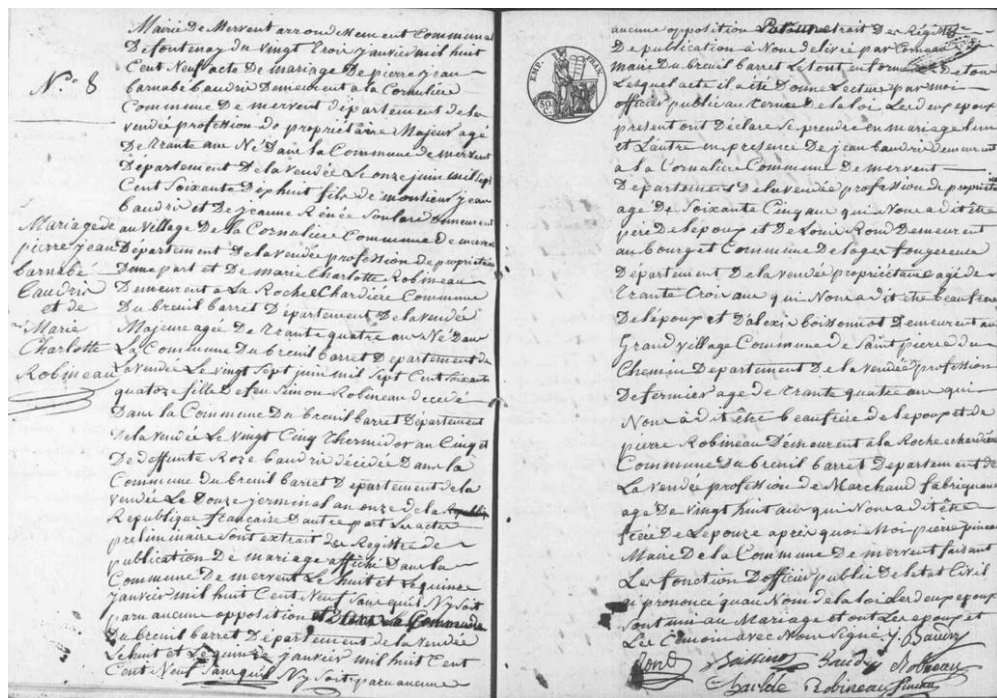 Mairie De Mervent arrondissement Communal
De fontenay du vingt trois janvier mil huit
Cent Neuf acte De mariage De pierre jean
barnabé baudri Demeurent a la Cornuliere
Commune De mervent département de la
vendée profession de propriétaire Majeur agé
De trante ans Né Dans la Commune de mervent
Département De la vendée Le onze juin mil sept
Cent Soixante Dephuit fils de monsieur jean
baudri et De jeanne Rénée Soulard Demeurent
au village De la Cornuliere Commune de mervent
Département De la vendée profession de propriétaire
Dune part et De marie Charlotte Robineau
Demeurent a La Roche Chardière Commune
Du breuil barret Département De la vendée
Majeure agée De trante quatre ans Né Dans
La Commune Du breuil barret Departement de
La vendée Le vingt Sept juin mil Sept Cent Soixante
quatorze fille de feu Simon Robineau décédé
Dans la Commune Du breuil barret Département
De la vendée Le vingt Cinq thermidor an Cinq et
De deffunte Roze baudri décédée Dans la
Commune du breuil barret Département de la
vendée Le Douze jerminal an onze de la
Republique française Dautre part Les actes
preliminaire Sont extrait des Registre de
publication De mariage affiché Dans la
Commune De mervent Le huit et Le quinze
janvier mil huit Cent Neuf Sans quil Ny soit
paru aucune opposition et Dans La Commune
Du breuil barret Département de la vendée
Le huit et Le quinze janvier mil huit Cent
Cent Neuf Sans quil Ny soit paru aucune
N.° 8
Mariage de
pierre jean
barnabé
Baudrie
et de
Marie
Charlotte
Robineau
aucune opposition extrait Des Régistre
De publication a Nous delivré par
maire Du breuil barret Le tout en forme De tous
Lesquel acte il a été Donné Lecture par moi
officier public au terme De la loi Les deux epoux
present ont Déclaré Se prendre en mariage Lun
et Lautre en presence De jean baudri demeurent
a la Cornuliere Commune De mervent
Département De la vendée profession de propriétaire
agé De Soixante Cinq ans qui Nous a dit être
pere De lepoux et De Louis Rond Demeurent
au bourg et Commune De loge fougereuse
Département De la vendée propriétaire agé de
trante trois ans qui Nous a dit être beaufrere
De lepoux et D'alexi boissonnot Demeurent au
Grand village Commune de Saint pierre du
Chemin Département De la vendée profession
De fermier agé de trante quatre ans qui
Nous a dit être beaufrére de lepoux et de
pierre Robineau Demeurent a la Roche echardiere
Commune Du breuil barret Departement de
La vendée profession de Marchand fabriquant
agé De vingt huit ans qui Nous a dit être
frére De Lepouze après quoi Moi pierre pineau
Maire De la Commune De mervent faisant
Les fonction Dofficier public De letat Civil
ai prononcé quau Nom de la loi Les deux epoux
Sont unis au Mariage et ont Les epoux et
Les témoins avec Nous Signé J. Baudry
Rond Baudry Robineau
Robineau Pineau
EMP. FRAN.